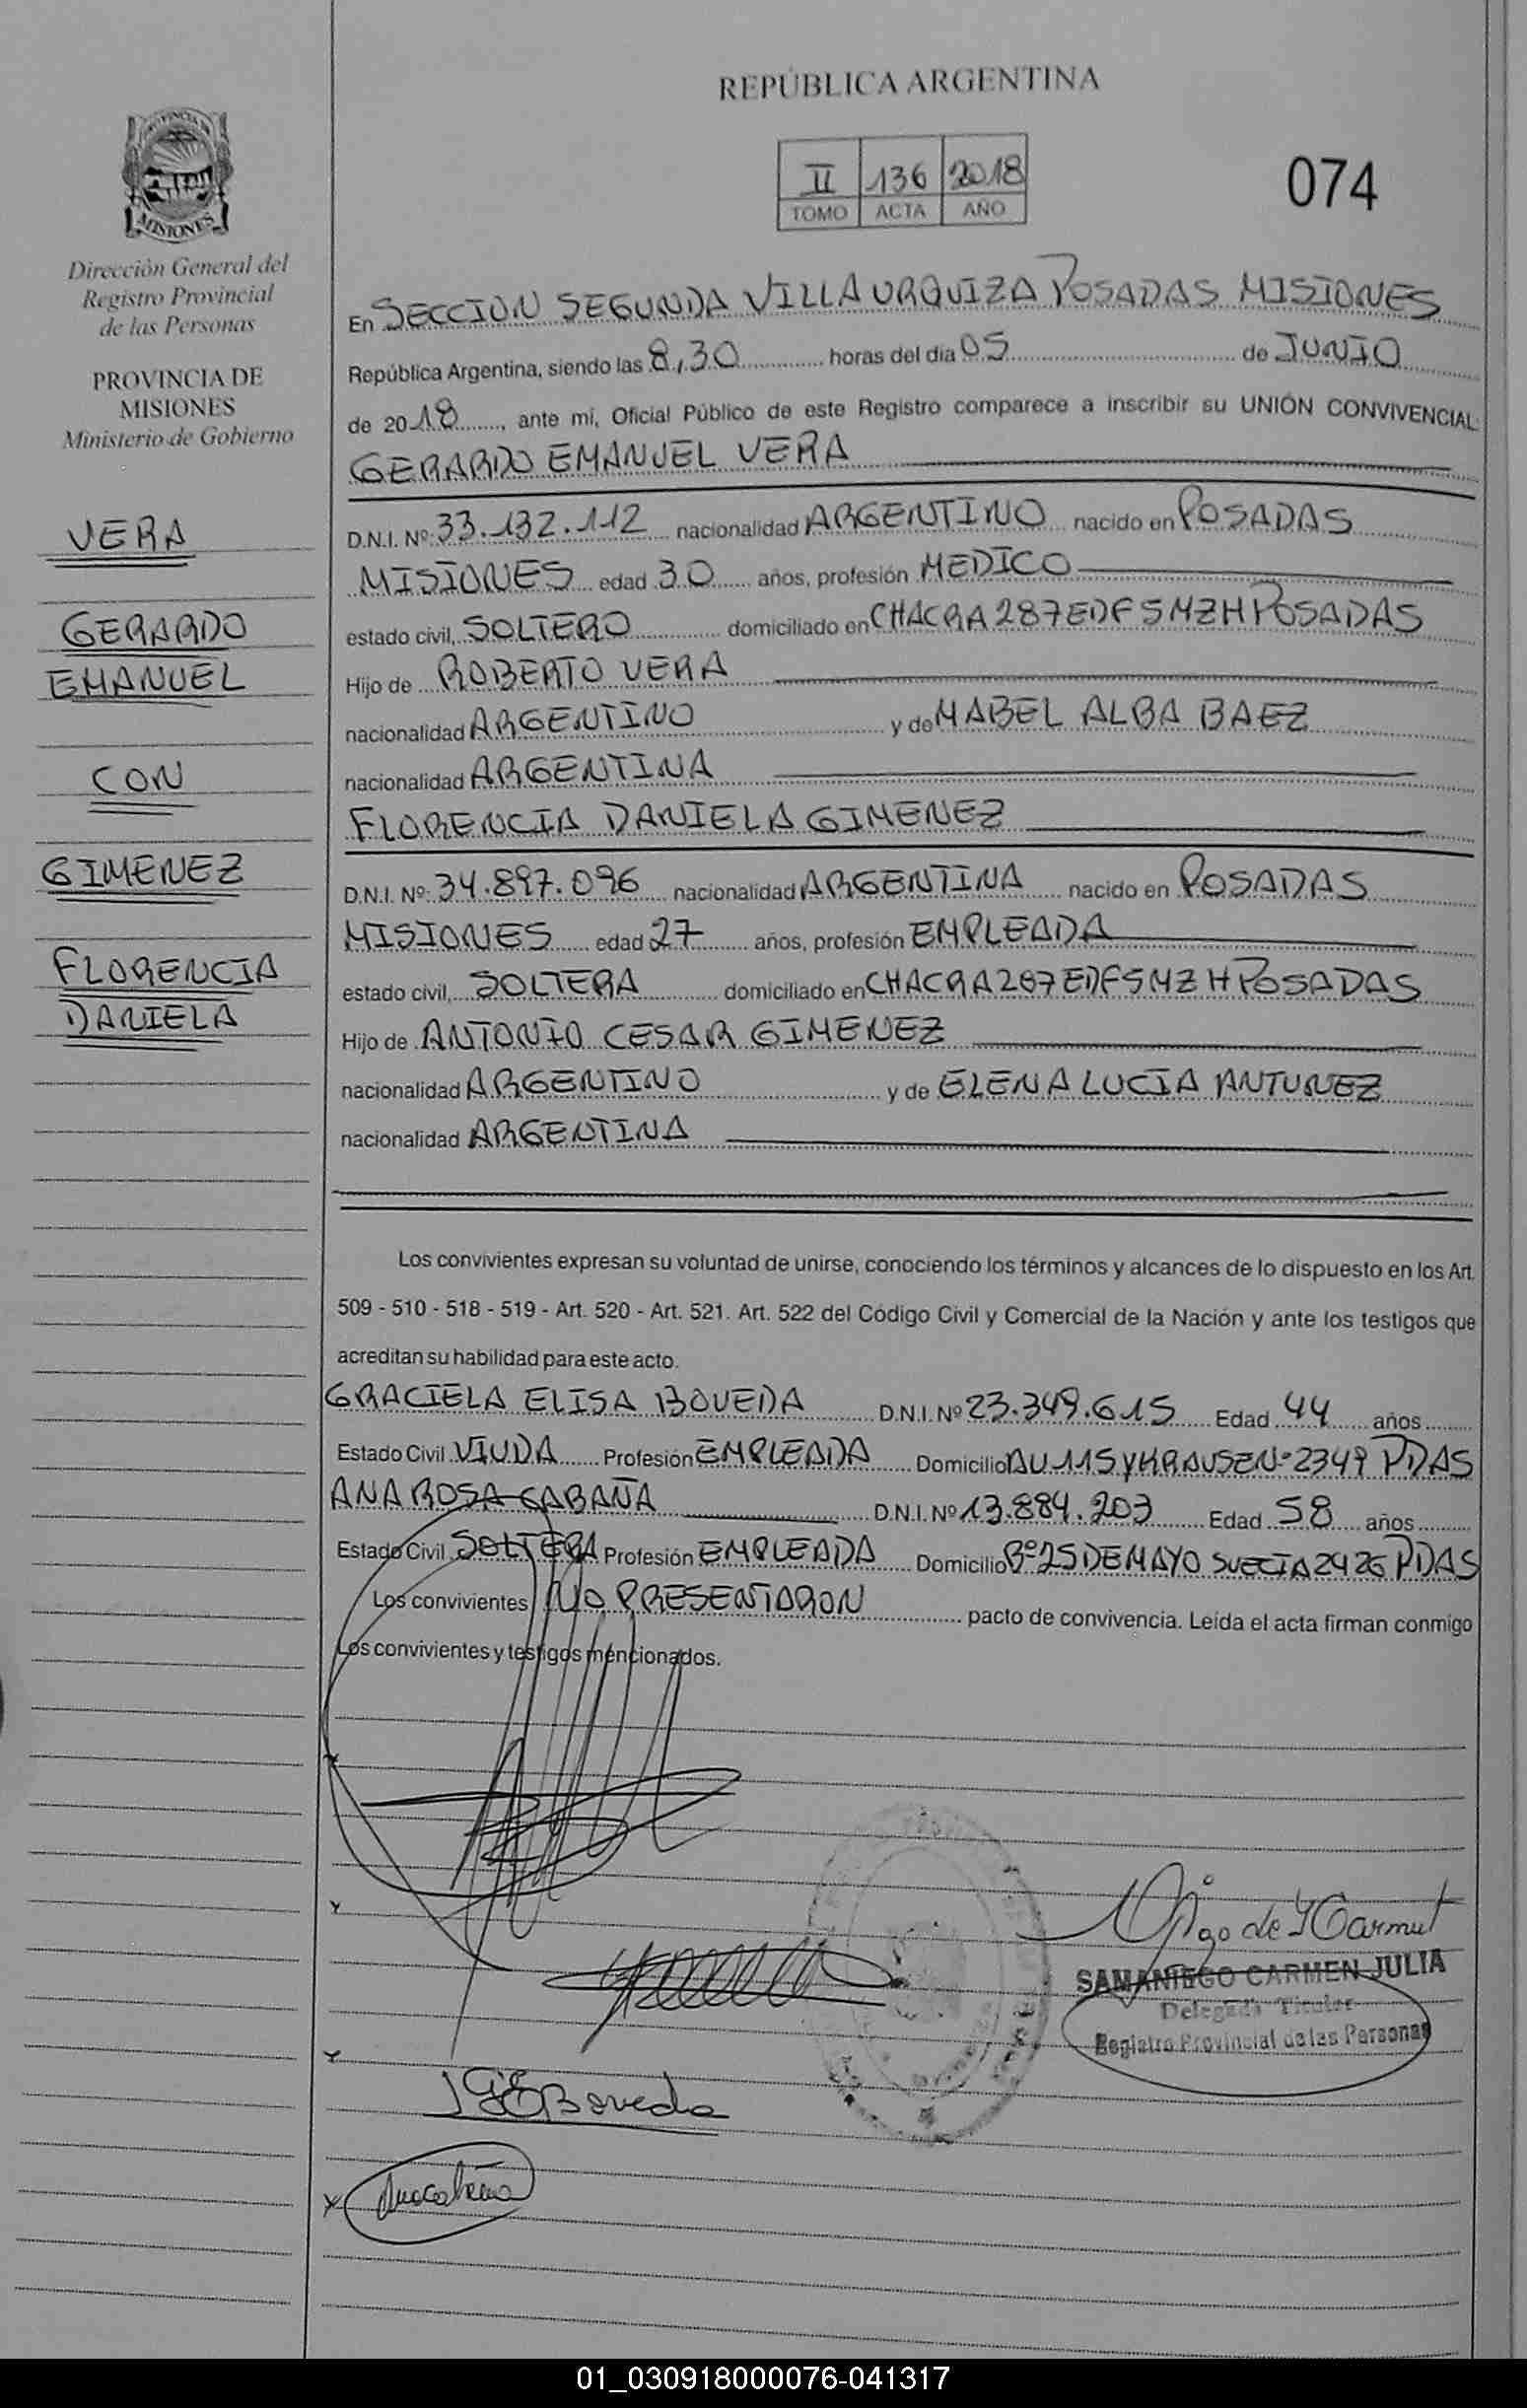 REPÚBLICA ARGENTINA
II 136 2018
TOMO ACTA AÑO
074
PROVINCIA DE
MISIONES
Dirección General del
Registro Provincial
de las Personas
PROVINCIA DE
MISIONES
Ministerio de Gobierno
VERA
GERARDO
EMANUEL
CON
GIMENEZ
FLORENCIA
DANIELA
En SECCION SEGUNDA VILLA URQUIZA POSADAS MISIONES
República Argentina, siendo las 8,30 horas del día 05 de JUNIO
de 2018, ante mí, Oficial Público de este Registro comparece a inscribir su UNIÓN CONVIVENCIAL:
GERARDO EMANUEL VERA
D.N.I. Nº: 33.132.112 nacionalidad ARGENTINO nacido en POSADAS
MISIONES edad 30 años, profesión MEDICO
estado civil, SOLTERO domiciliado en CHACRA 287 EDF 5 MZ H POSADAS
Hijo de ROBERTO VERA
nacionalidad ARGENTINO y de MABEL ALBA BAEZ
nacionalidad ARGENTINA
FLORENCIA DANIELA GIMENEZ
D.N.I. Nº: 34.897.096 nacionalidad ARGENTINA nacido en POSADAS
MISIONES edad 27 años, profesión EMPLEADA
estado civil, SOLTERA domiciliado en CHACRA 287 EDF 5 MZ H POSADAS
Hijo de ANTONIO CESAR GIMENEZ
nacionalidad ARGENTINO y de ELENA LUCIA ANTUNEZ
nacionalidad ARGENTINA
Los convivientes expresan su voluntad de unirse, conociendo los términos y alcances de lo dispuesto en los Art.
509 - 510 - 518 - 519 - Art. 520 - Art. 521. Art. 522 del Código Civil y Comercial de la Nación y ante los testigos que
acreditan su habilidad para este acto.
GRACIELA ELISA BOVEDA D.N.I. Nº 23.349.615 Edad 44 años
Estado Civil VIUDA Profesión EMPLEADA Domicilio AV 115 Y KRAUSE Nº 2349 PDAS
ANA ROSA CABAÑA D.N.I. Nº 13.884.203 Edad 58 años
Estado Civil SOLTERA Profesión EMPLEADA Domicilio Bº 25 DE MAYO SUECIA 2426 PDAS
Los convivientes NO PRESENTARON pacto de convivencia. Leída el acta firman conmigo
Los convivientes y testigos mencionados.
SAMANIEGO CARMEN JULIA
Delegada Titular
Registro Provincial de las Personas
G E Boveda
01_030918000076-041317